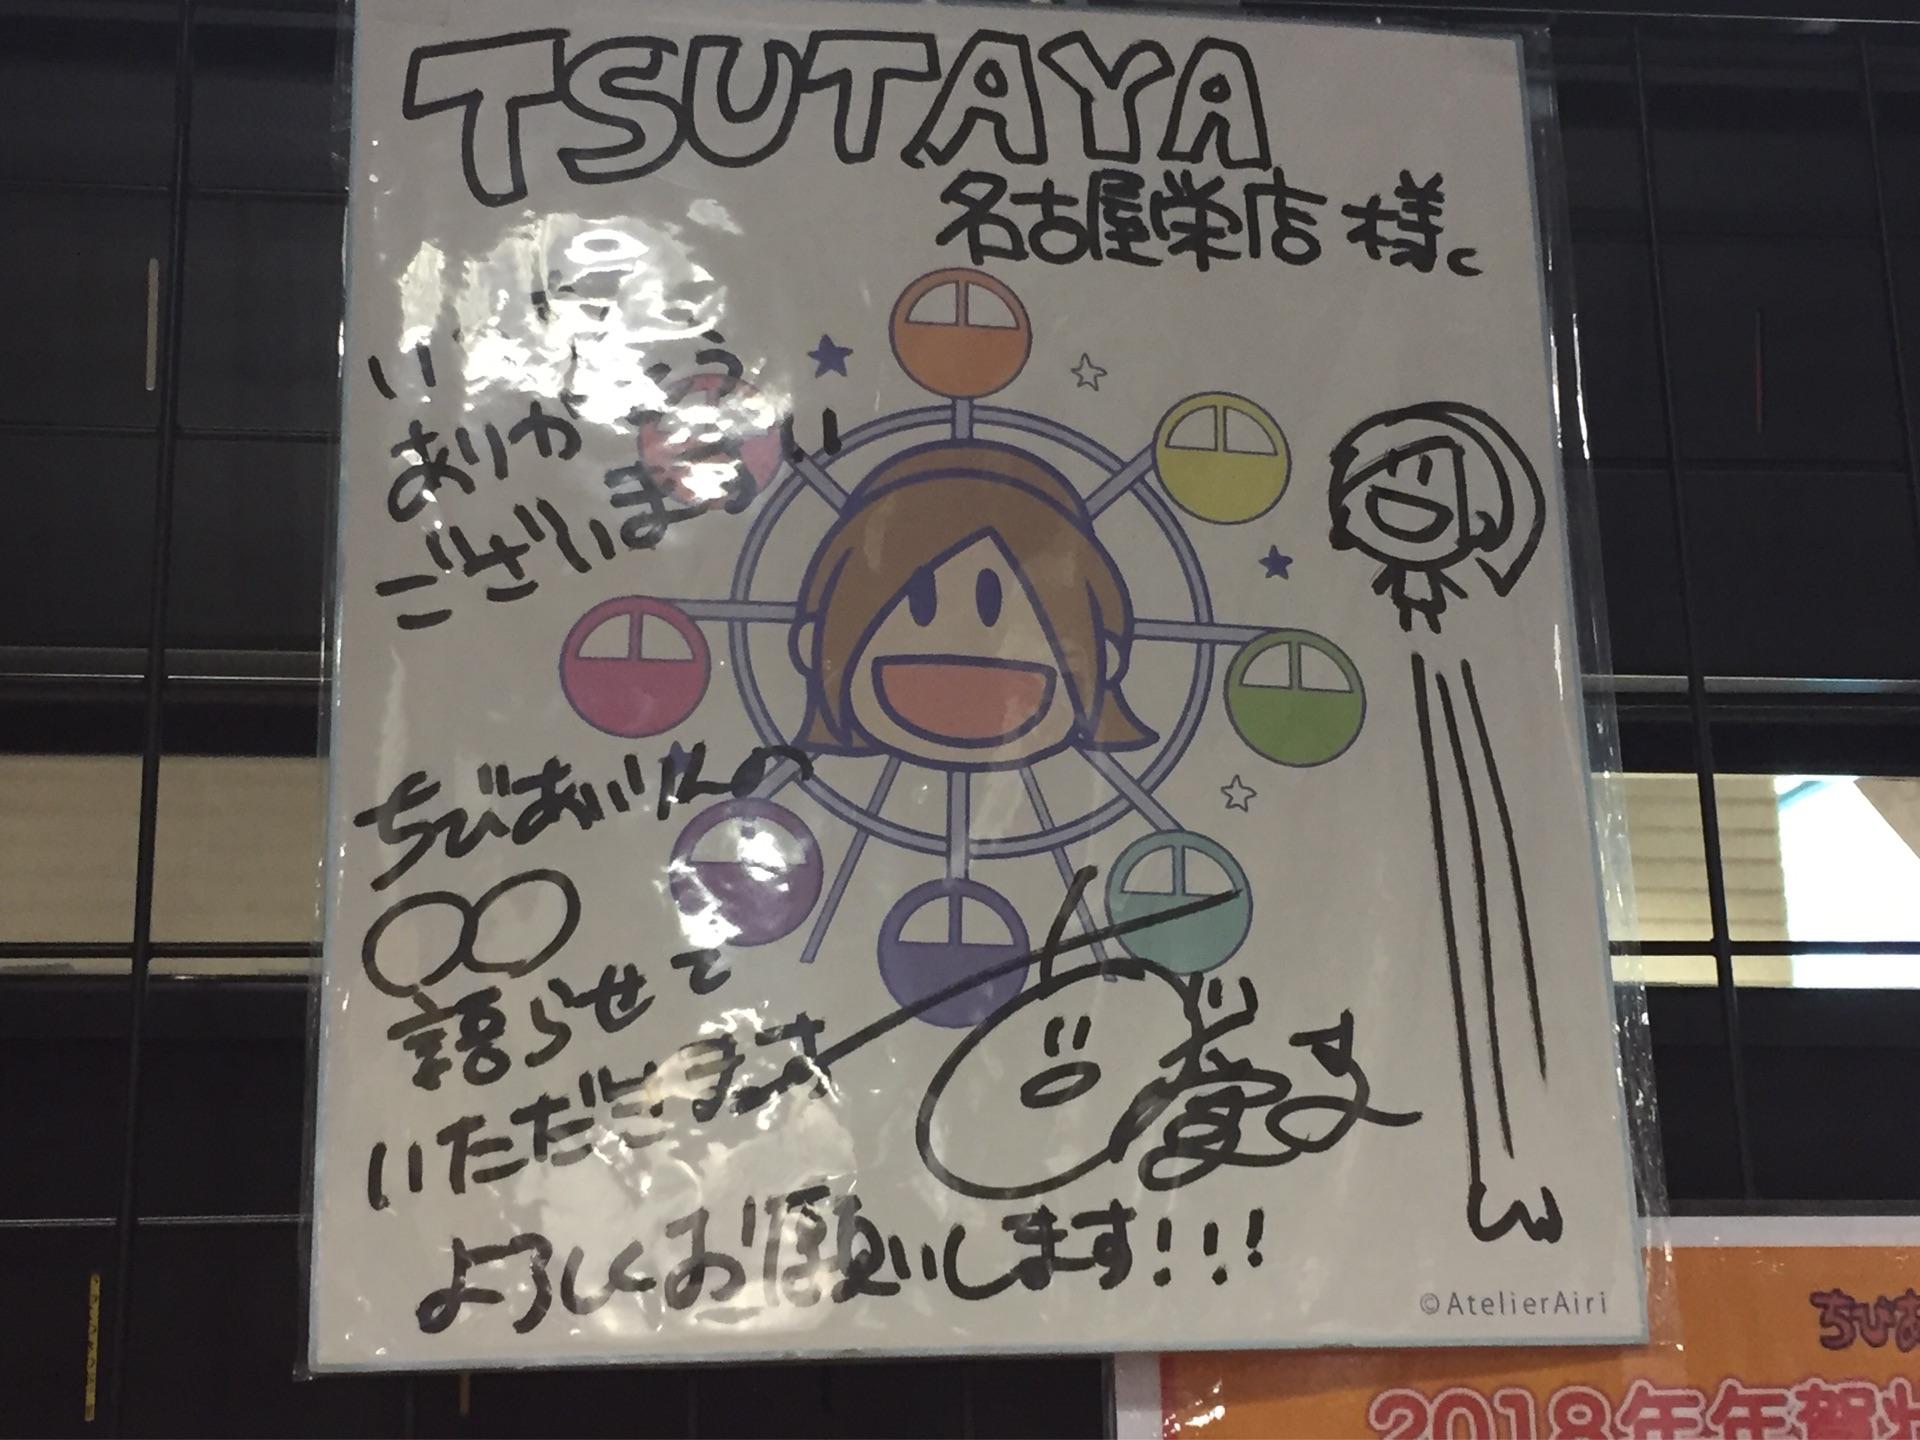 TSUTAYA
名古屋栄店 様。
ありがとう
ございます
ちびあいりんの
〇〇
語らせて
いただきます
よろしくお願いします!!!
©AtelierAiri
ちびあ
2018年年賀状